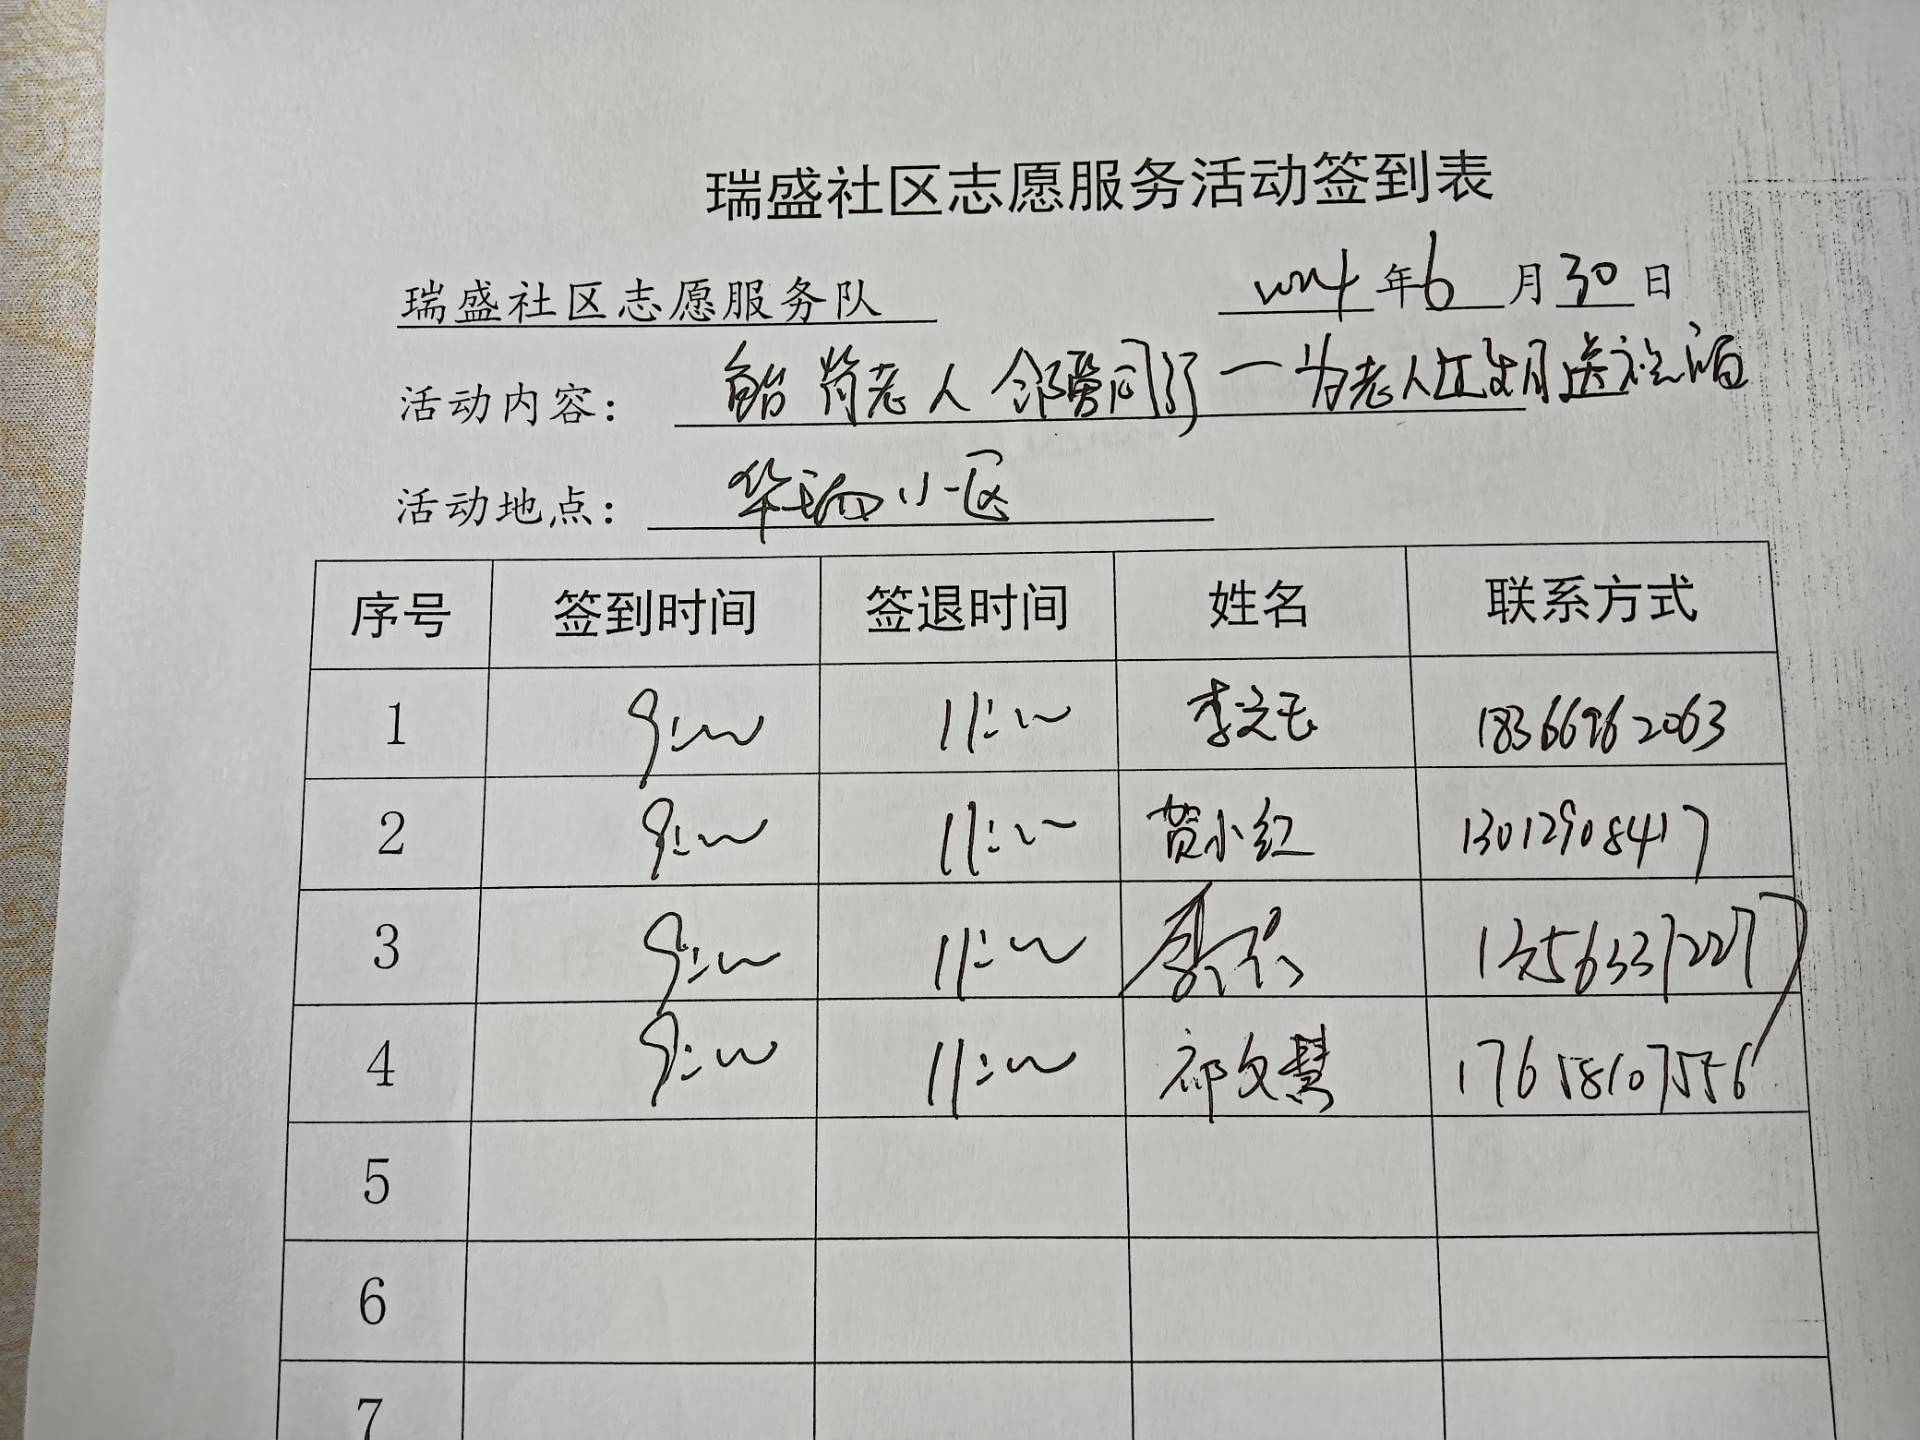 瑞盛社区志愿服务活动签到表
瑞盛社区志愿服务队 2024年6月30日
活动内容： 鲐背老人 邻暖同行一为老人过生日送祝福
活动地点： 华瑞小区
序号 签到时间 签退时间 姓名 联系方式
1 9:00 11:00 李文玉 18366962063
2 9:00 11:00 贺小红 13012908417
3 9:00 11:00
4 9:00 11:00 祁文慧 17658107556
5
6
7